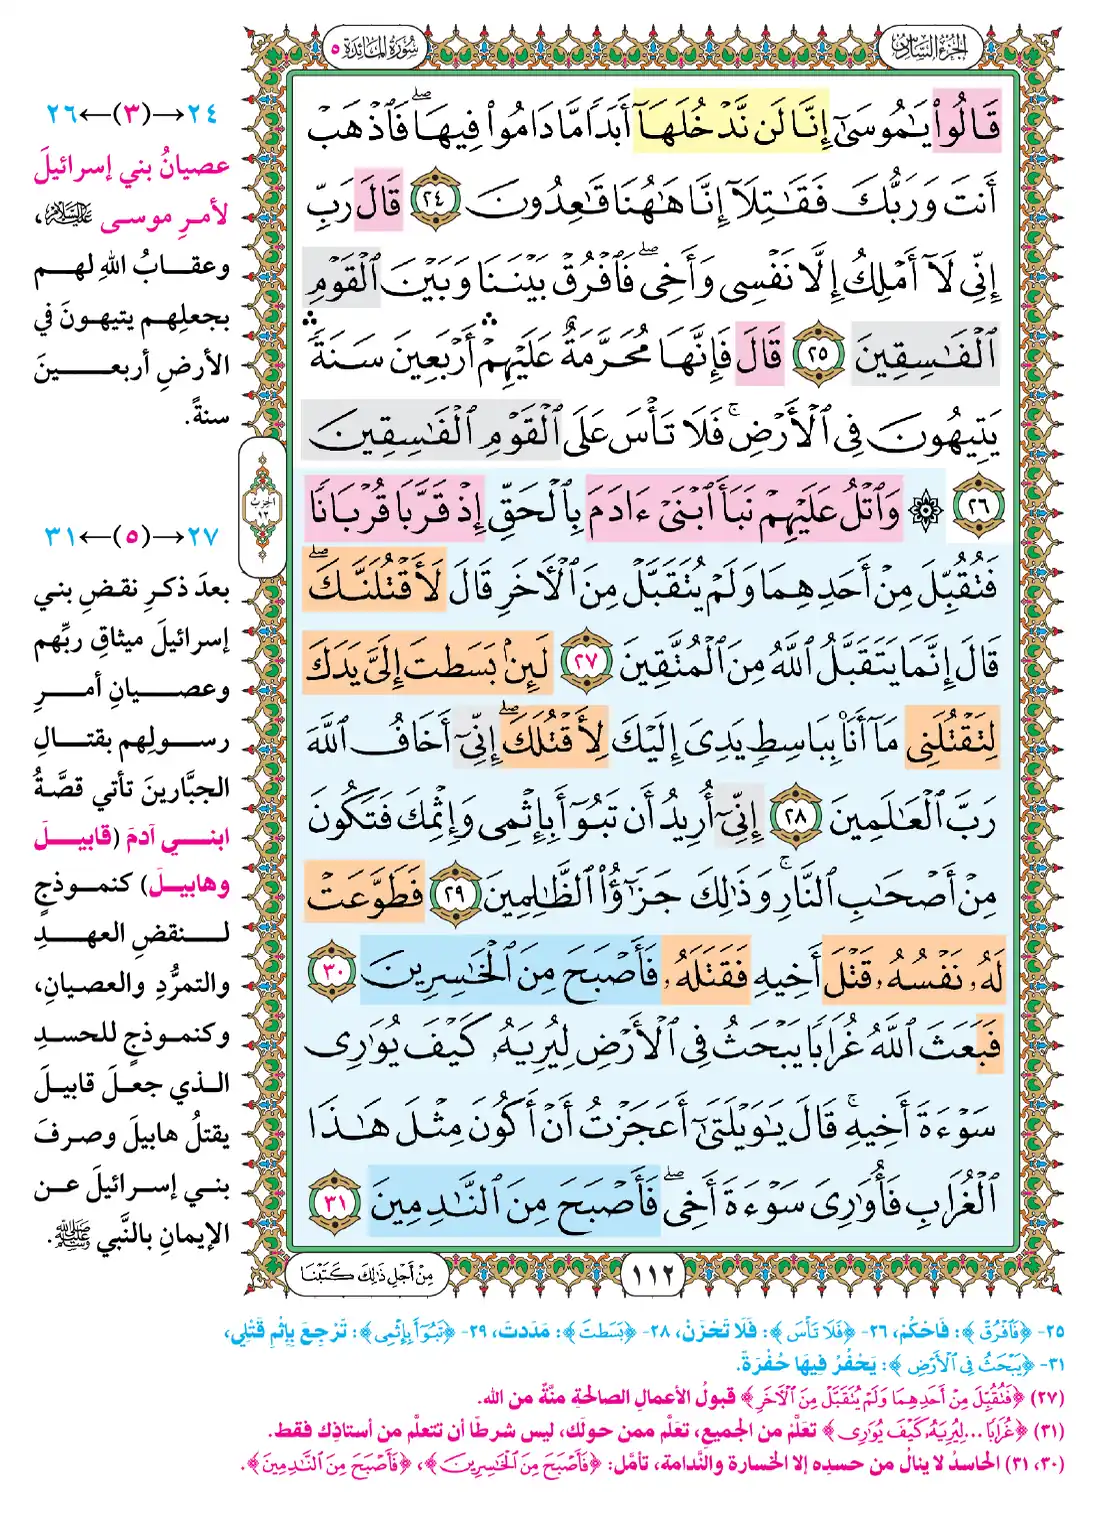 الجزء السادس
سورة المائدة ٥
قَالُوا۟ يَـٰمُوسَىٰٓ إِنَّا لَن نَّدْخُلَهَآ أَبَدًا مَّا دَامُوا۟ فِيهَا ۖ فَٱذْهَبْ
أَنتَ وَرَبُّكَ فَقَـٰتِلَآ إِنَّا هَـٰهُنَا قَـٰعِدُونَ ٢٤ قَالَ رَبِّ
إِنِّى لَآ أَمْلِكُ إِلَّا نَفْسِى وَأَخِى ۖ فَٱفْرُقْ بَيْنَنَا وَبَيْنَ ٱلْقَوْمِ
ٱلْفَـٰسِقِينَ ٢٥ قَالَ فَإِنَّهَا مُحَرَّمَةٌ عَلَيْهِمْ ۛ أَرْبَعِينَ سَنَةً ۛ
يَتِيهُونَ فِى ٱلْأَرْضِ ۚ فَلَا تَأْسَ عَلَى ٱلْقَوْمِ ٱلْفَـٰسِقِينَ
٢٦ ۞ وَٱتْلُ عَلَيْهِمْ نَبَأَ ٱبْنَىْ ءَادَمَ بِٱلْحَقِّ إِذْ قَرَّبَا قُرْبَانًا
فَتُقُبِّلَ مِنْ أَحَدِهِمَا وَلَمْ يُتَقَبَّلْ مِنَ ٱلْـَٔاخَرِ قَالَ لَأَقْتُلَنَّكَ ۖ
قَالَ إِنَّمَا يَتَقَبَّلُ ٱللَّهُ مِنَ ٱلْمُتَّقِينَ ٢٧ لَئِنۢ بَسَطتَ إِلَىَّ يَدَكَ
لِتَقْتُلَنِى مَآ أَنَا۠ بِبَاسِطٍ يَدِىَ إِلَيْكَ لِأَقْتُلَكَ ۖ إِنِّىٓ أَخَافُ ٱللَّهَ
رَبَّ ٱلْعَـٰلَمِينَ ٢٨ إِنِّىٓ أُرِيدُ أَن تَبُوٓأَ بِإِثْمِى وَإِثْمِكَ فَتَكُونَ
مِنْ أَصْحَـٰبِ ٱلنَّارِ ۚ وَذَٰلِكَ جَزَٰٓؤُا۟ ٱلظَّـٰلِمِينَ ٢٩ فَطَوَّعَتْ
لَهُۥ نَفْسُهُۥ قَتْلَ أَخِيهِ فَقَتَلَهُۥ فَأَصْبَحَ مِنَ ٱلْخَـٰسِرِينَ ٣٠
فَبَعَثَ ٱللَّهُ غُرَابًا يَبْحَثُ فِى ٱلْأَرْضِ لِيُرِيَهُۥ كَيْفَ يُوَٰرِى
سَوْءَةَ أَخِيهِ ۚ قَالَ يَـٰوَيْلَتَىٰٓ أَعَجَزْتُ أَنْ أَكُونَ مِثْلَ هَـٰذَا
ٱلْغُرَابِ فَأُوَٰرِىَ سَوْءَةَ أَخِى ۖ فَأَصْبَحَ مِنَ ٱلنَّـٰدِمِينَ ٣١
الحزب
١٢
٢٤→(٣)←٢٦
عصيانُ بني إسرائيلَ
لأمرِ موسى عليه السلام،
وعقابُ اللهِ لهم
بجعلِهم يتيهونَ في
الأرضِ أربعينَ
سنةً.
٢٧→(٥)←٣١
بعدَ ذكرِ نقضِ بني
إسرائيلَ ميثاقِ ربِّهم
وعصيانِ أمرِ
رسولِهم بقتالِ
الجبَّارينَ تأتي قصَّةُ
ابني آدمَ (قابيلَ
وهابيلَ) كنموذجٍ
لنقضِ العهدِ
والتمرُّدِ والعصيانِ،
وكنموذجٍ للحسدِ
الذي جعلَ قابيلَ
يقتلُ هابيلَ وصرفَ
بني إسرائيلَ عن
الإيمانِ بالنَّبي ﷺ.
١١٢
مِنْ أَجْلِ ذَٰلِكَ كَتَبْنَا
٢٥- ﴿فَٱفْرُقْ﴾: فَاحْكُمْ، ٢٦- ﴿فَلَا تَأْسَ﴾: فَلَا تَحْزَنْ، ٢٨- ﴿بَسَطتَ﴾: مَدَدتَ، ٢٩- ﴿تَبُوٓأَ بِإِثْمِى﴾: تَرْجِعَ بِإِثْمِ قَتْلِي،
٣١- ﴿يَبْحَثُ فِى ٱلْأَرْضِ﴾: يَحْفُرُ فِيهَا حُفْرَةً.
(٢٧) ﴿فَتُقُبِّلَ مِنْ أَحَدِهِمَا وَلَمْ يُتَقَبَّلْ مِنَ ٱلْـَٔاخَرِ﴾ قبولُ الأعمالِ الصالحةِ منَّةٌ من الله.
(٣١) ﴿غُرَابًا ...لِيُرِيَهُۥ كَيْفَ يُوَٰرِى﴾ تعَلَّمْ من الجميعِ، تعَلَّم ممن حولَك، ليس شرطًا أن تتعلَّم من أستاذِك فقط.
(٣٠، ٣١) الحاسدُ لا ينالُ من حسدِه إلا الخسارة والنَّدامة، تأمَّل: ﴿فَأَصْبَحَ مِنَ ٱلْخَـٰسِرِينَ﴾، ﴿فَأَصْبَحَ مِنَ ٱلنَّـٰدِمِينَ﴾.